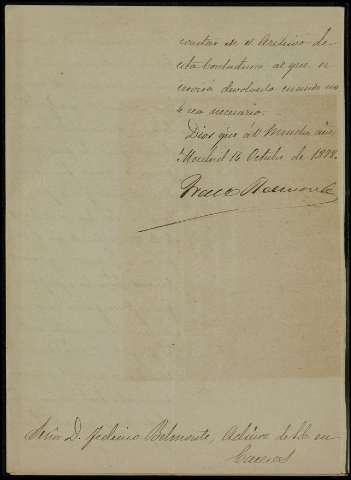 constar en el Archivo de
esta Contaduria al que se
servirá devolverlo cuando no
le sea necesario.
Dios gue á V. muchos años
Madrid 14 Octubre de 1878.
Señor D. Federico Belmonte, Admor de S.E. en
Caceres